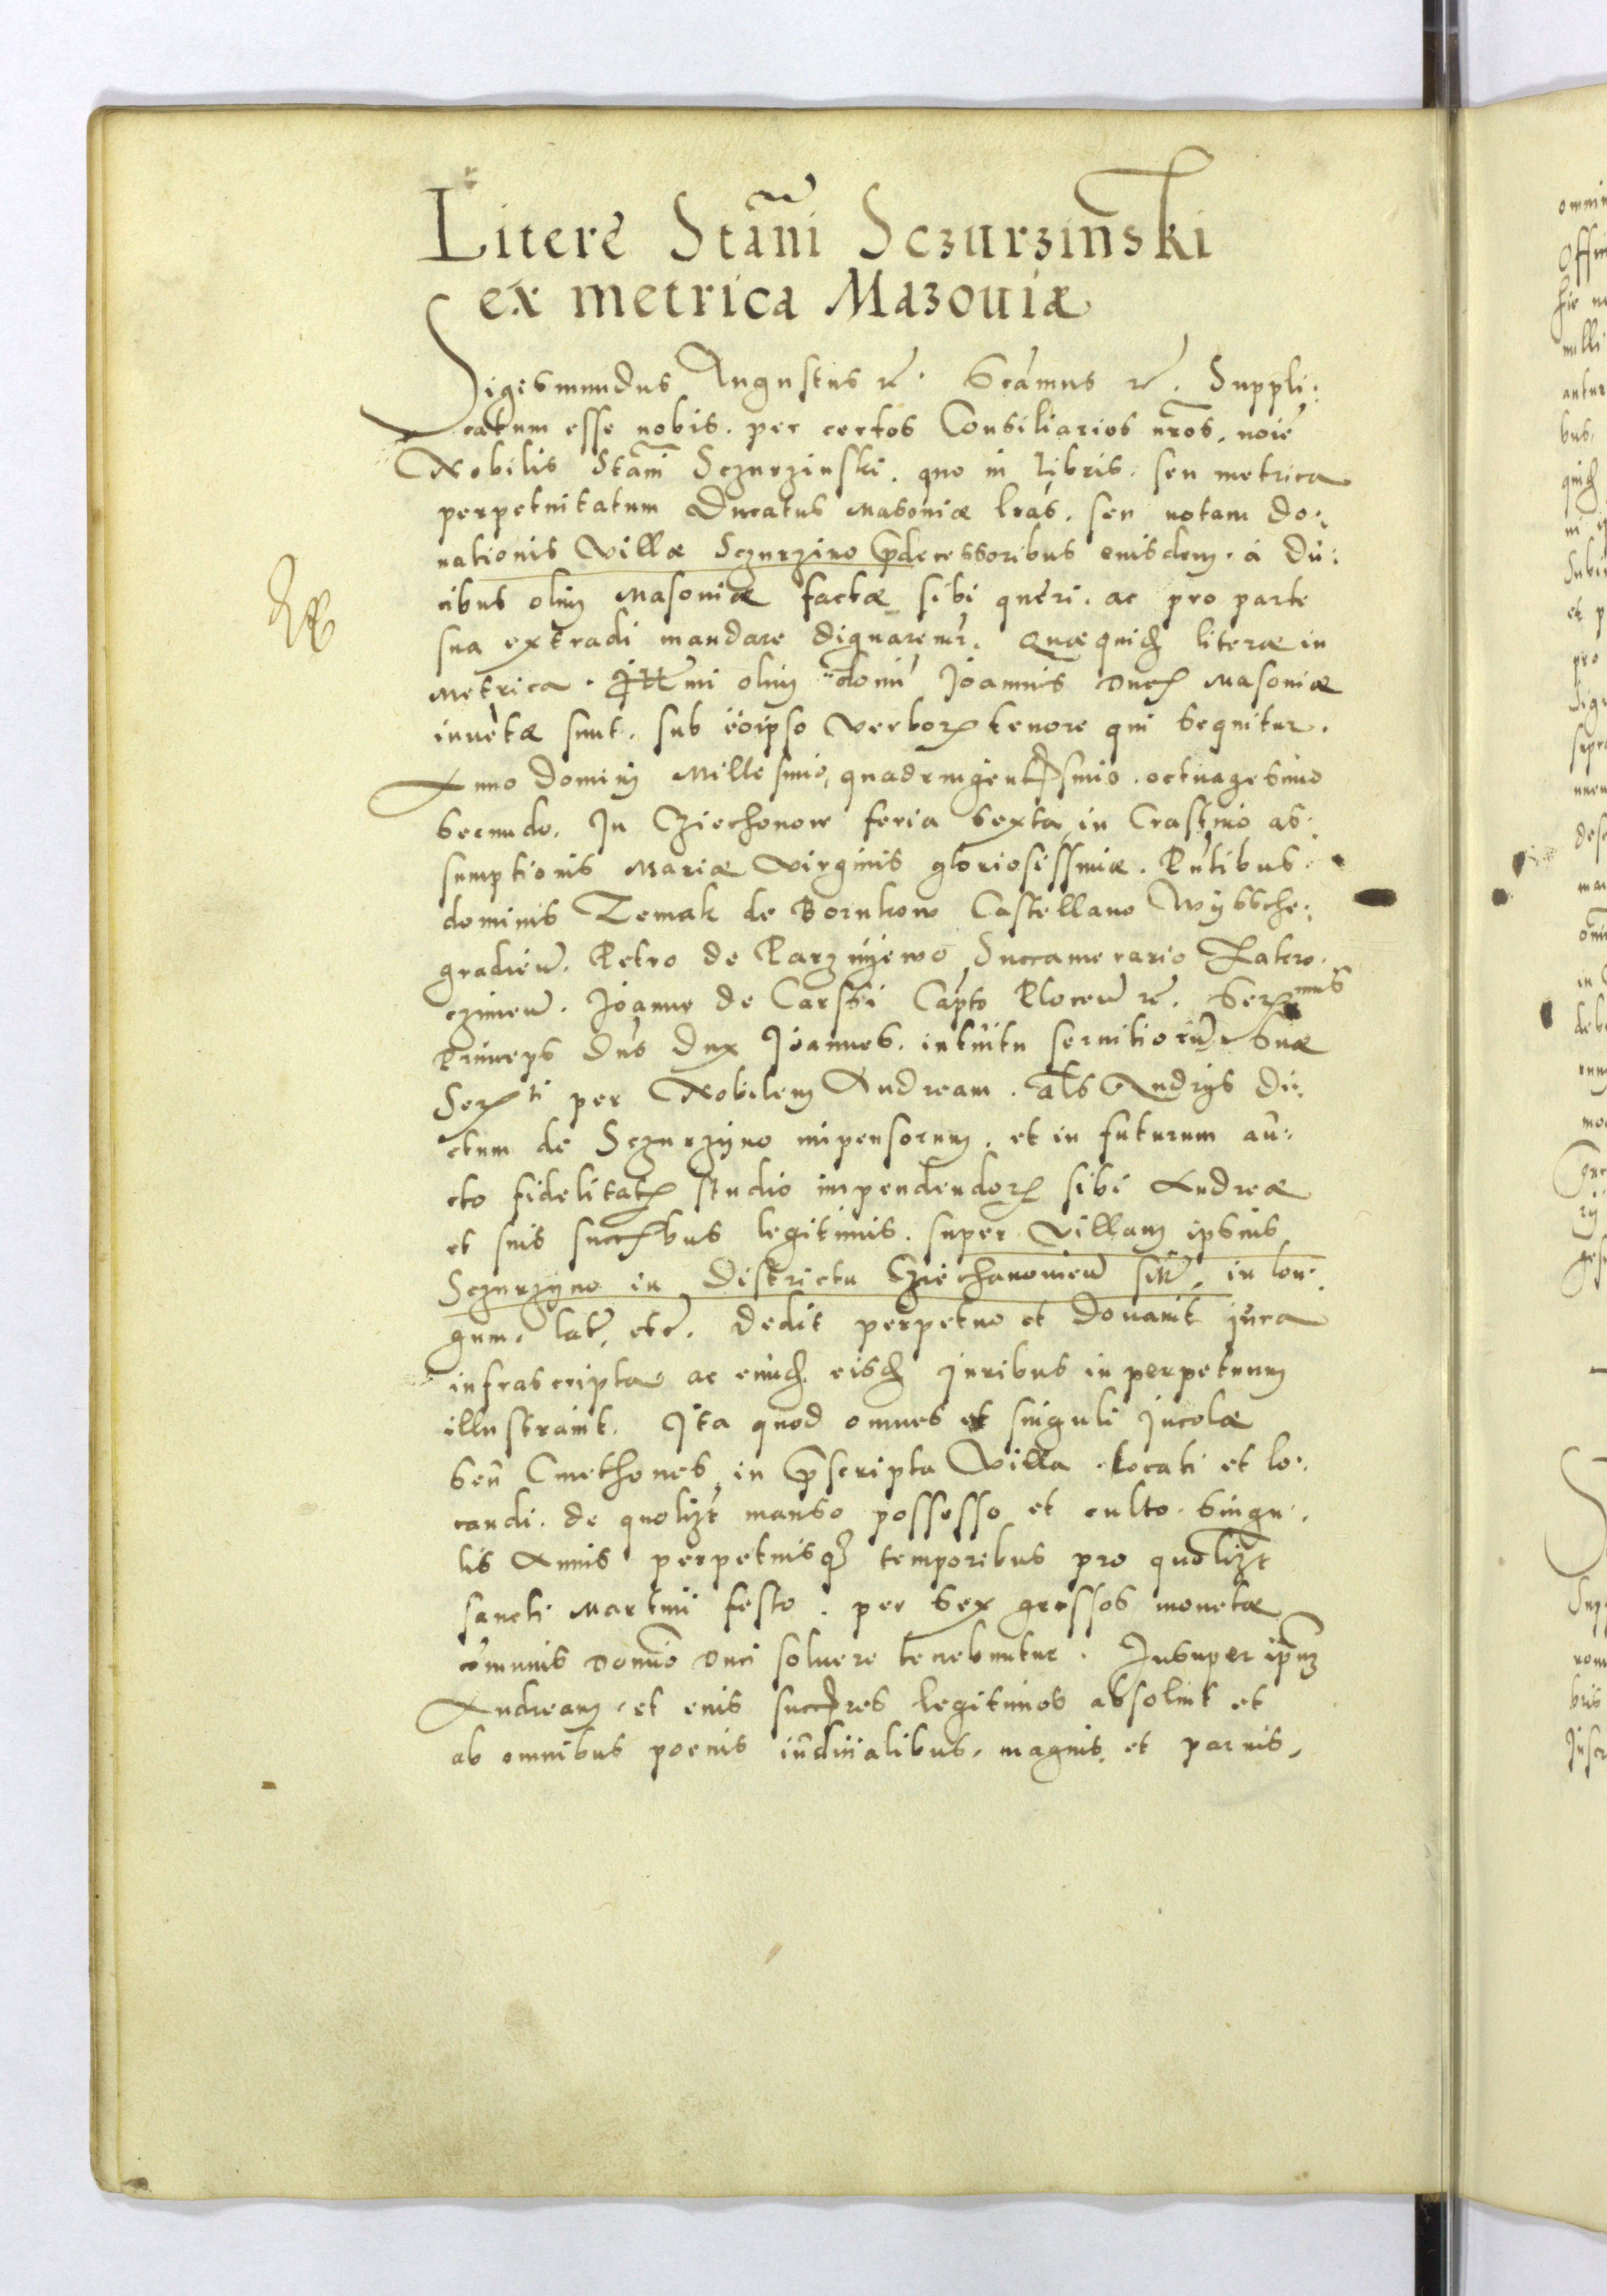 Litere Stāni Sczurzinski
ex metrica Mazouiæ
Sigismundus Augustus rē. Scāmus rē. Suppli:
catum esse nobis. per certos Consiliarios nros, noīe
Nobilis Stani Sczurzinski. quo in libris. seu metrica
perpetuitatum Ducatus Masouiæ lras. seu notam do:
nationis Villæ Sczurzino pdecessoribus eiusdem. à Du:
cibus olim Masouiæ factæ sibi queri. ac pro parte
sua extradi mandare dignaremr. Quæquid literæ in
Metrica. Illmi olim domi Joannis Ducis Masouiæ
inuētæ sunt. sub eoipso verbor tenore qui sequitur.
Anno Domini Millesimo, quadringentesimo. octuagesimo
secundo. In Cziechonow feria sexta, in Crastino as:
sumptionis Mariæ Virginis gloriosissimæ. Pntibus.
dominis Zemak de Bornkow Castellano Wyssche:
gradien. Petro de Parzniewo Succamerario Zakro.
czimen. Joanne de Carski Capto Plocen rē. Sermus
Princeps Dns Dux Joannes. intuitu seruitiorum Suæ
Serti per Nobilem Andream. als Andrys Di:
ctum de Sczurzyno inpensorum. et in futurum au:
cto fidelitatis studio impendendor sibi Andreæ
et suis succbus legitimis. super villam ipsius
Sczurzyno in Districtu Cziechanouien sitt, in lon:
gum. lat, etc. Dedit perpetuo et donauit jura
infrascripta ac eund. eisd Juribus in perpetuum
illustrauit. Ita quod omnes et singuli Incolæ
seu Cmethones in pscripta Villa locati et lo:
candi. de quolizt manso possesso et culto. singu:
lis Annis perpetuisq temporibus pro quolizt
sancti Martini festo. per sex grossos monetæ
comunis Domino Duci soluere tenebuntur. Insuper ipsum
Andream et eius succres legitimos absoluit et
ab omnibus poenis iudicialibus. magnis et paruis,